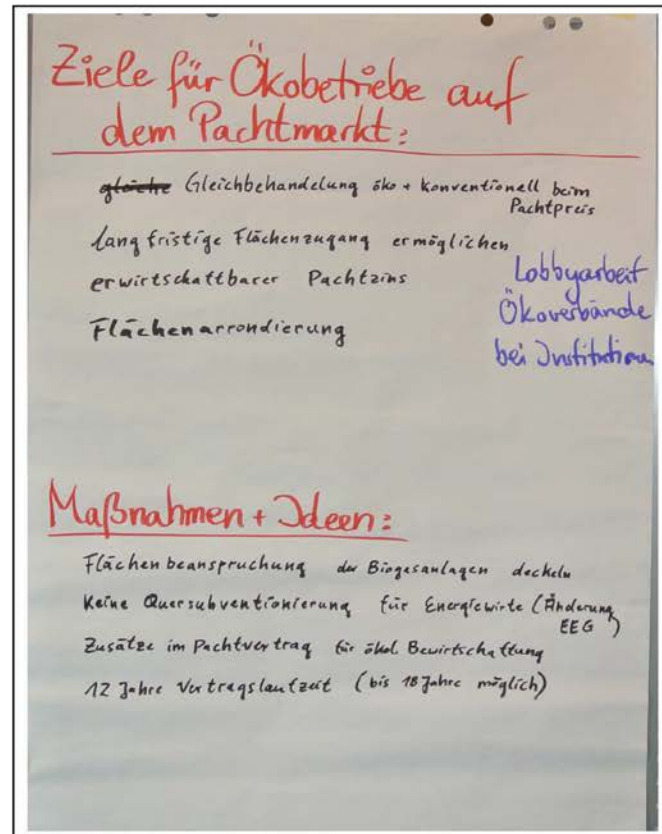 Ziele für Ökobetriebe auf
dem Pachtmarkt:
gleiche Gleichbehandelung öko + konventionell beim
Pachtpreis
langfristige Flächenzugang ermöglichen
erwirtschaftbarer Pachtzins
Flächenarrondierung
Lobbyarbeit
Ökoverbände
bei Institutionen
Maßnahmen + Ideen:
Flächenbeanspruchung der Biogasanlagen deckeln
Keine Quersubventionierung für Energiewirte (Änderung
EEG)
Zusätze im Pachtvertrag für ökol Bewirtschaftung
12 Jahre Vertragslaufzeit (bis 18 Jahre möglich)